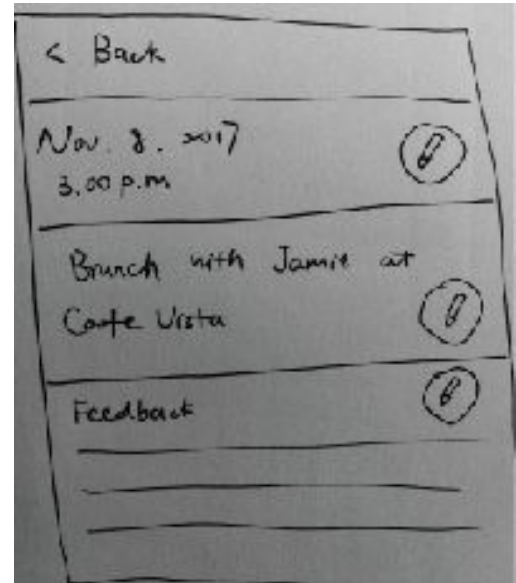 < Back
Nov. 8. 2017
3.00 p.m
Brunch with Jamie at
Cafe Vista
Feedback